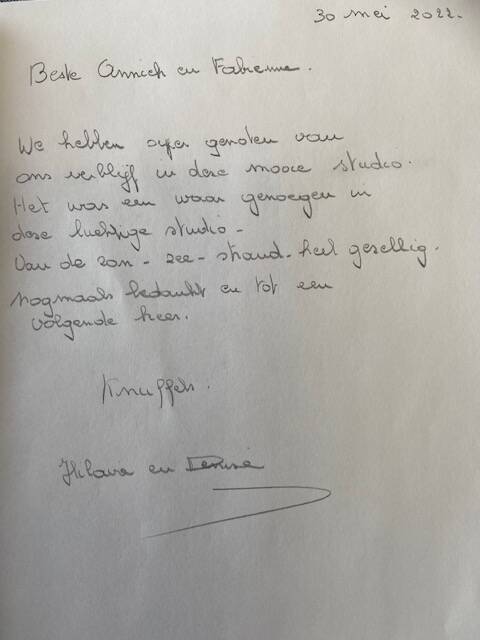 30 mei 2022.
Beste Annick en Fabienne.
We hebben super genoten van
ons verblijf in deze mooie studio.
Het was een waar genoegen in
deze luchtige studio -
Van de zon - zee - strand - heel gezellig.
Nogmaals bedankt en tot een
volgende keer.
Knuffels.
Hilaire en Denise